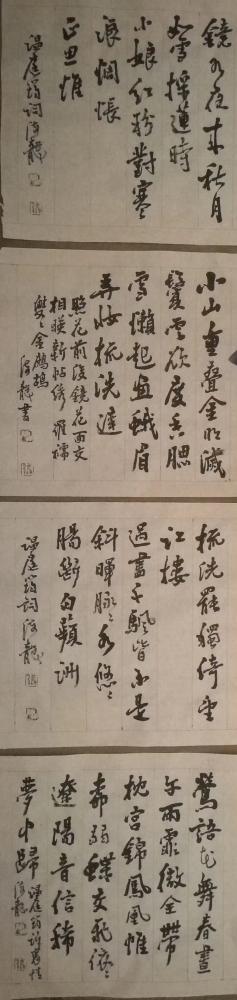 鏡水夜來秋月
如雪採蓮時
小娘紅粉對寒
浪惆悵
正思惟
温庭筠詞
小山重叠金明滅
鬢雲欲度香腮
雪懶起畫蛾眉
弄妝梳洗遲
照花前後鏡花面交
相映新帖绣羅襦
雙々金鷓鴣
梳洗罷獨倚望
江樓
過盡千颿皆不是
斜暉脉々水悠々
腸斷白蘋洲
温庭筠詞
鶯語花舞春晝
午雨霏微金帶
枕宫錦鳳凰帷
柳弱蝶交飛依々
遼陽音信稀
夢中歸
温庭筠訴衷情